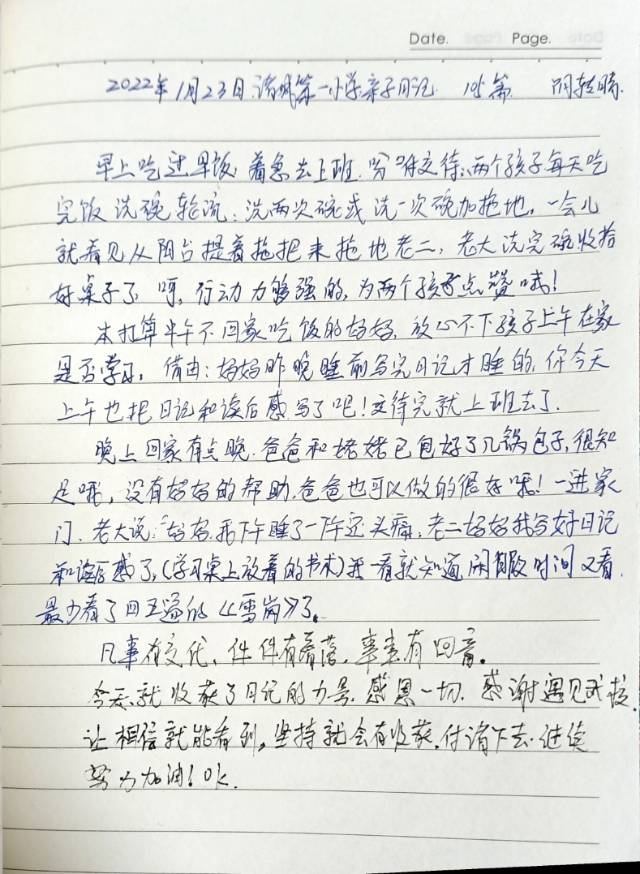 Date. Page.
2022年1月23日诸城第一小学亲子日记 105篇
早上吃过早饭,着急去上班.吩咐交待:两个孩子每天吃
完饭洗碗轮流:洗两次碗或洗一次碗加拖地,一会儿
就看见从阳台提着拖把来拖地老二,老大洗完碗收拾
好桌子了,呵,行动力够强的,为两个孩子点赞哦!
本打算中午不回家吃饭的妈妈,放心不下孩子上午在家
是否学习,借由:妈妈昨晚睡前写完日记才睡的,你今天
上午也把日记和读后感写了吧!交待完就上班去了.
晚上回家有点晚.爸爸和姥姥已包好了几锅包子,很知
足哦,没有妈妈的帮助,爸爸也可以做的很好哦!一进家
门,老大说:妈妈,我下午睡了一下午觉头痛,老二妈妈我写好日记
和读后感了,(学习桌上放着的书本)我一看就知道闲暇时间又看
最少看了四五遍的《雪岗》了。
凡事有交代,件件有着落,事事有回音。
今天就收获了日记的力量.感恩一切.感谢遇见
让相信就能看到,坚持就会有收获,付诸下去.继续
努力加油!OK.